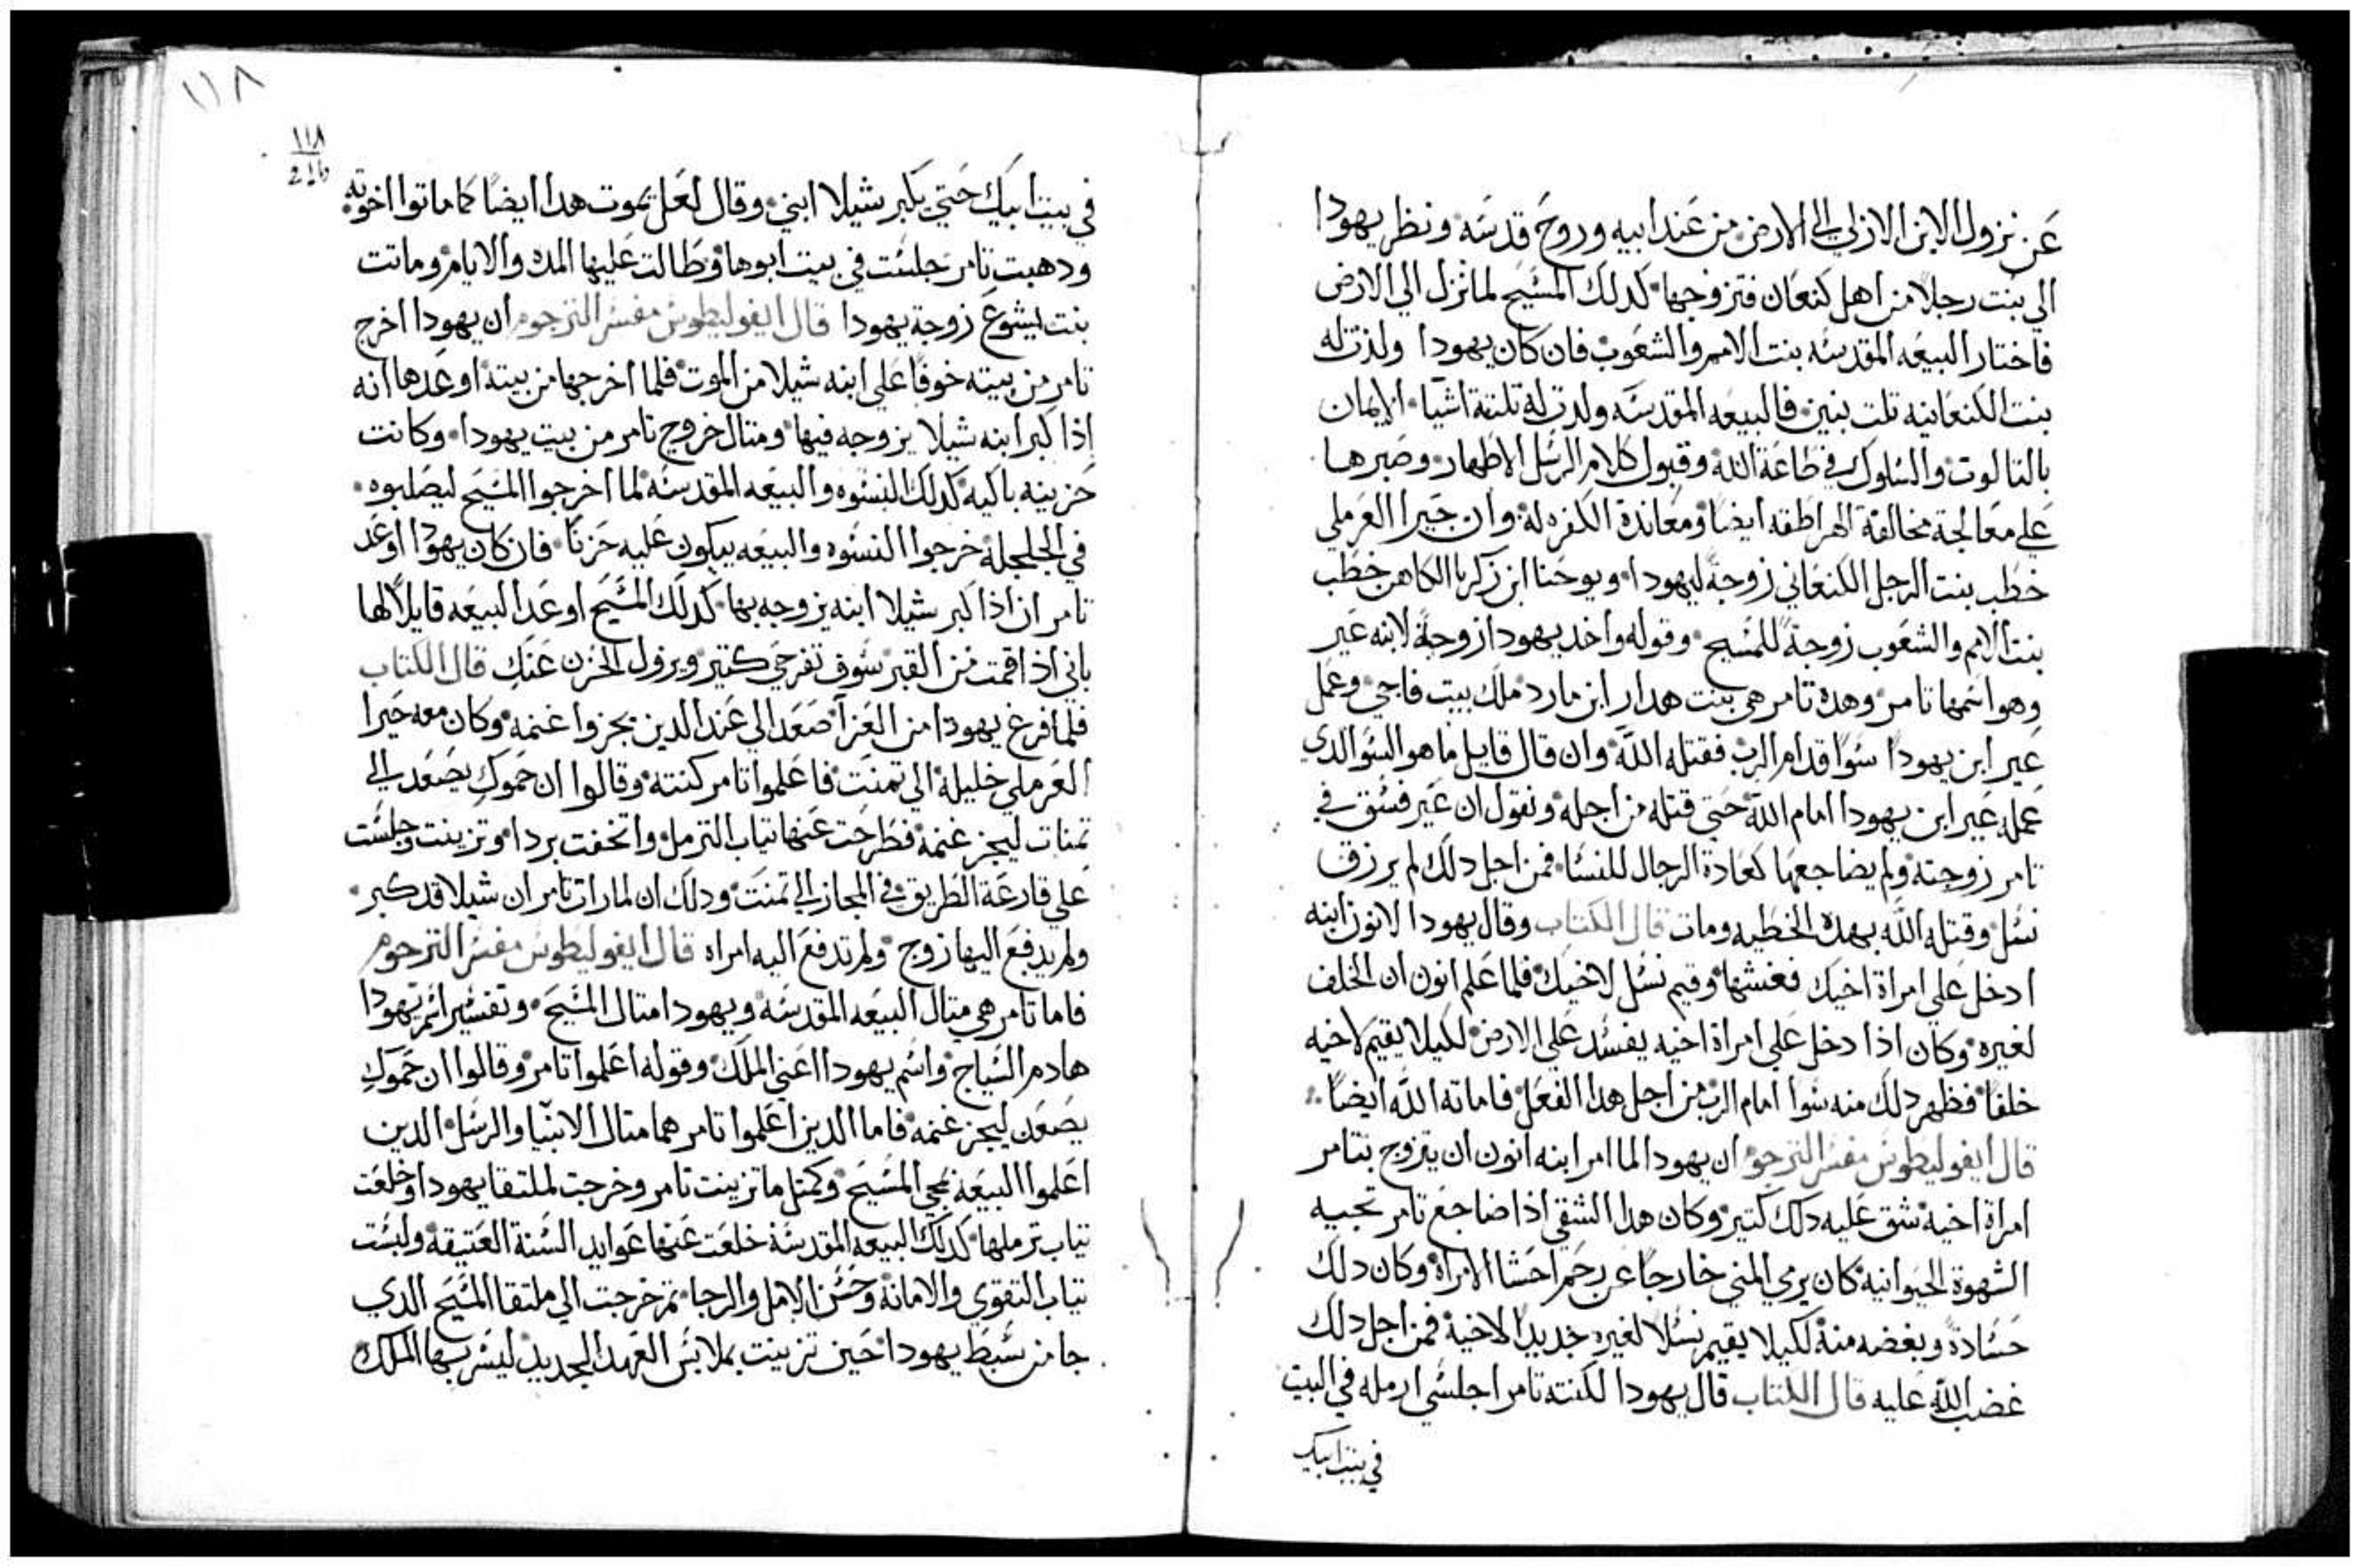 عن نزول الابن الازلي الي الارض من عند ابيه وروح قدسه ونظر يهودا
الي بنت رجلا من اهل كنعان فتزوجها كدلك المسيح لما نزل الي الارض
فاختار البيعه المقدسه بنت الامم والشعوب فان كان يهودا ولدت له
بنت الكنعانيه تلت بنين فالبيعه المقدسه ولدت له تلتة اشيا الايمان
بالتالوت والسلوك في طاعة الله وقبول كلام الرسل الاطهار وصبرها
علي معالجة مخالفة الهراطقه ايضا ومعاندة الكفره له وان حيرا العرملي
خطب بنت الرجل الكنعاني زوجة ليهودا ويوحنا ابن زكريا الكاهن خطب
بنت الامم والشعوب زوجة للمسيح وقوله واخد يهودا زوجة لابنه عير
وهو اسمها تامر وهده تامر هي بنت هدار ابن مارد ملك بيت فاجي وعمل
عير ابن يهودا سوا قدام الرب فقتله الله وان قال قايل ما هو السو الدي
عمله عير ابن يهودا امام الله حتي قتله من اجله ونقول ان عير فسق في
تامر زوجته ولم يضاجعها كعادة الرجال للنسا فمن اجل دلك لم يرزق
نسل وقتله الله بهده الخطيه ومات قال الكتاب وقال يهودا لانون ابنه
ادخل علي امراة اخيك فغشها وقيم نسل لاخيك فلما علم انون ان الخلف
لغيره وكان اذا دخل علي امراة اخيه يفسد علي الارض لكيلا يقيم لاخيه
خلفا فظهر دلك منه سوا امام الرب من اجل هدا الفعل فاماته الله ايضا
قال ايفوليطوس مفسر الترجوم ان يهودا لما امر ابنه انون ان يتزوج بتامر
امراة اخيه شق عليه دلك كتير وكان هدا الشقي اذا ضاجع تامر تجييه
الشهوة الحيوانيه كان يرمي المني خارجا عن رحم احشا الامراة وكان دلك
حسادة وبغضه منه لكيلا يقيم نسلا لغيره جديدا لاخيه فمن اجل دلك
غضب الله عليه قال الكتاب قال يهودا لكنته تامر اجلسي ارمله في البيت
في بيت ابيك
١١٨
١١٨
في بيت ابيك حتي يكبر شيلا ابني وقال لعل يموت هدا ايضا كما ماتوا اخوته
ودهبت تامر جلست في بيت ابوها وطالت عليها المده والايام وماتت
بنت يشوع زوجة يهودا قال ايفوليطوس مفسر الترجوم ان يهودا اخرج
تامر من بيته خوفا علي ابنه شيلا من الموت فلما اخرجها من بيته اوعدها انه
اذا كبر ابنه شيلا يزوجه فيها ومتال خروج تامر من بيت يهودا وكانت
حزينه باكيه كدلك النسوه والبيعه المقدسه لما اخرجوا المسيح ليصلبوه
في الجلجلة خرجوا النسوه والبيعه يبكون عليه حزنا فان كان يهودا اوعد
تامر ان اذا كبر شيلا ابنه يزوجه بها كدلك المسيح اوعد البيعه قايلا لها
باني اذا قمت من القبر سوف تفرحي كتير ويزول الحزن عنك قال الكتاب
فلما فرغ يهودا من العزا صعد الي عند الدين يجزوا غنمه وكان معه حيرا
العرملي خليله الي تمنت فاعلموا تامر كنته وقالوا ان حموك يصعد الي
تمنات ليجز غنمه فطرحت عنها تياب الترمل واتخفت بردا وتزينت وجلست
علي قارعة الطريق في المجاز الي تمنت ودلك ان لما رات تامر ان شيلا قد كبر
ولم يدفع اليها زوج ولم تدفع اليه امراه قال ايفوليطوس مفسر الترجوم
فاما تامر هي متال البيعه المقدسه ويهودا متال المسيح وتفسير اسم يهودا
هادم السياج واسم يهودا اعني الملك وقوله اعلموا تامر وقالوا ان حموك
يصعد ليجز غنمه فاما الدين اعلموا تامر هما متال الانبيا والرسل الدين
اعلموا البيعه بمجي المسيح وكمتل ما تزينت تامر وخرجت لملتقا يهودا وخلعت
تياب ترملها كدلك البيعه المقدسه خلعت عنها عوايد السنة العتيقة ولبست
تياب التقوي والامانة وحسن الامل والرجا تم خرجت الي ملتقا المسيح الدي
جا من سبط يهودا حين تزينت بملابس العهد الجديد ليسر بها الملك